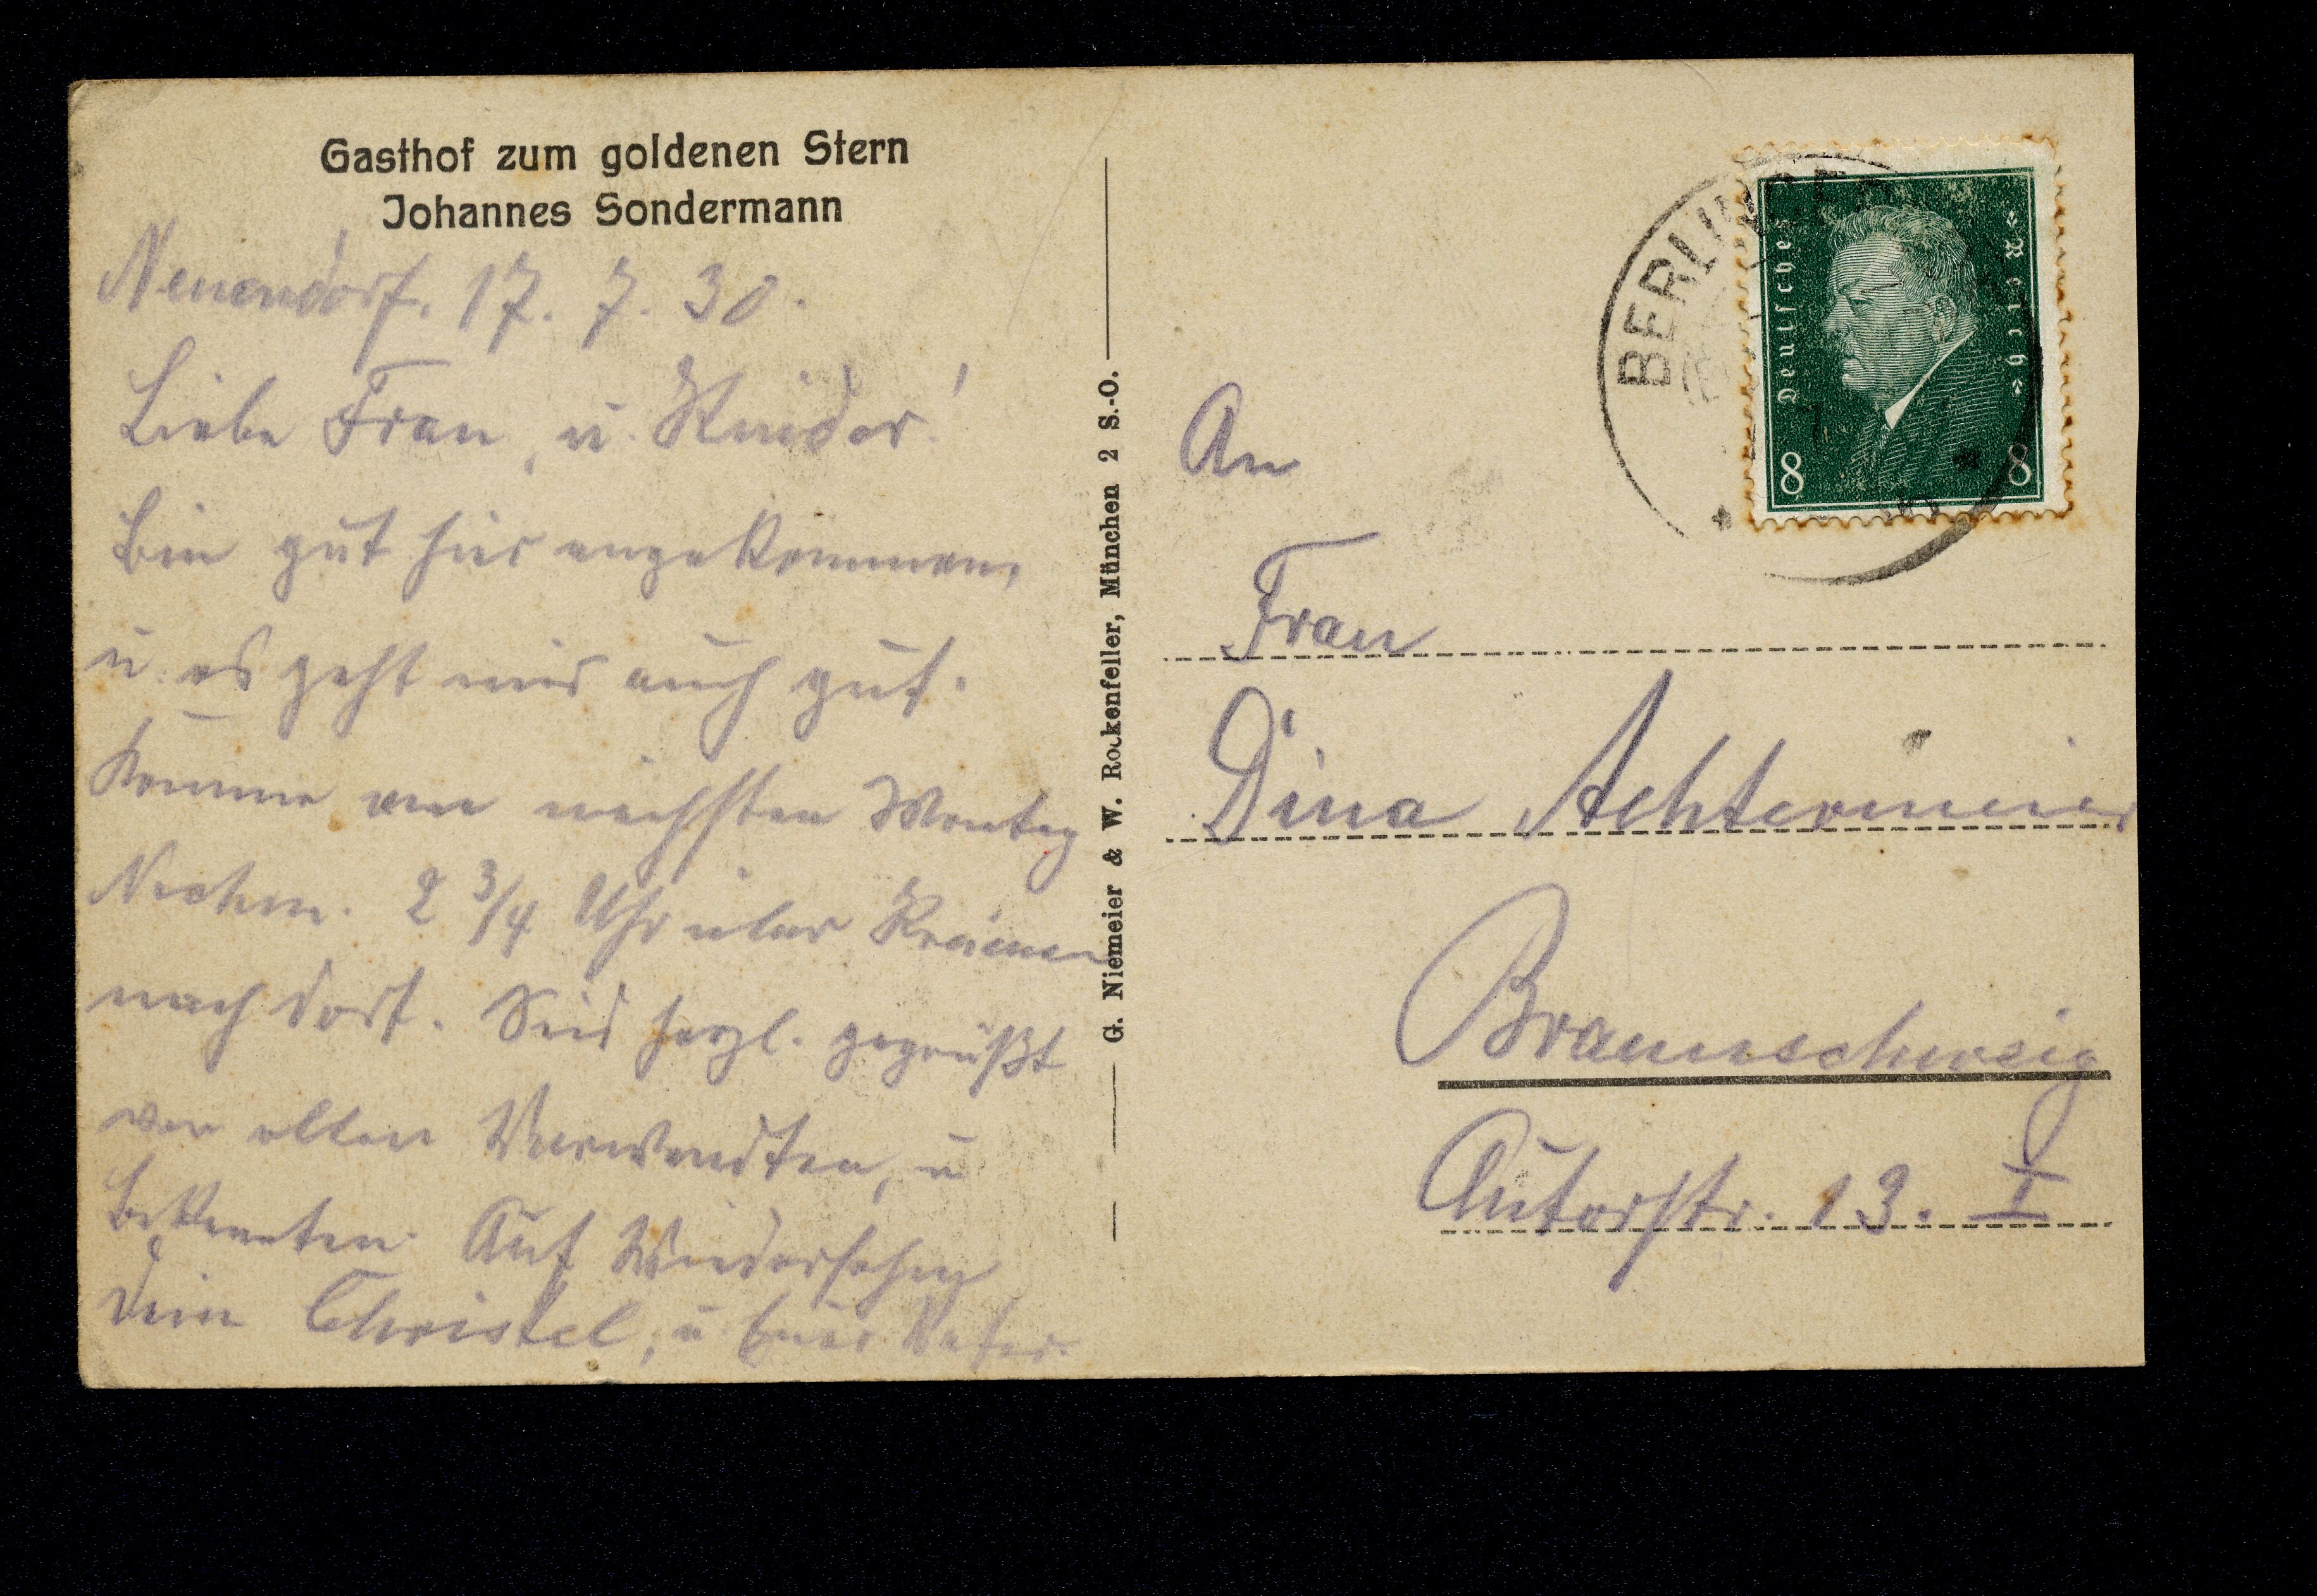 Gasthof zum goldenen Stern
Johannes Sondermann
Neuendorf. 17. 7. 30.
Liebe Frau, u. Kinder!
Bin gut hier angekommen,
u. es geht mir auch gut.
Komme am nächsten Montag
Nachm. 2 3/4 Uhr über
nach dort. Seid herzl. gegrüßt
von allen Verwandten, u
Bekannten. Auf Wiedersehen
Dein Christel, u. Euer Vater.
G. Niemeier & W. Rockenfeller, München 2 S.-O.
BERLIN
Deutsches Reich
8 8
An
Frau
Dina Achtermeier
Braunschweig
Autorstr. 13. I